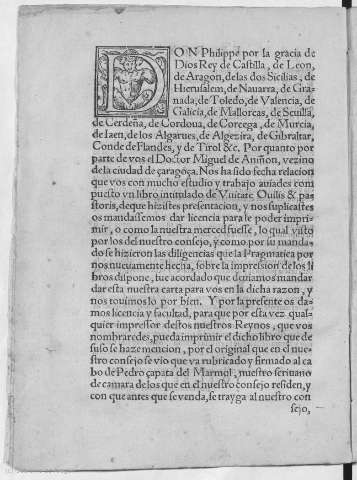 DON Philippe por la gracia de
Dios Rey de Castilla, de Leon,
de Aragon, de las dos Sicilias, de
Hierusalem, de Nauarra, de Gra-
nada, de Toledo, de Valencia, de
Galicia, de Mallorcas, de Seuilla,
de Cerdeña, de Cordoua, de Corcega, de Murcia,
de Iaen, de los Algarues, de Algezira, de Gibraltar,
Conde de Flandes, y de Tirol &c. Por quanto por
parte de vos el Doctor Miguel de Aniñon, vezino
de la ciudad de çaragoça. Nos ha sido fecha relacion
que vos con mucho estudio y trabajo auiades com
puesto vn libro intitulado de Vnitate Ouilis & pa
storis, de que hezistes presentacion, y nos suplicastes
os mandassemos dar licencia para le poder impri-
mir, o como la nuestra merced fuesse, lo qual visto
por los del nuestro consejo, y como por su manda-
do se hizieron las diligencias que la Pragmatica por
nos nueuamente hecha, sobre la impression de los li
bros dispone, fue acordado que deuiamos mandar
dar esta nuestra carta para vos en la dicha razon, y
nos touimos lo por bien. Y por la presente os da-
mos licencia y facultad, para que por esta vez qual-
quier impressor destos nuestros Reynos, que vos
nombraredes, pueda imprimir el dicho libro que de
suso se haze mencion, por el original que en el nue-
stro consejo se vio que va rubricado y firmado al ca
bo de Pedro çapata del Marmol, nuestro scriuano
de camara de los que en el nuestro consejo residen, y
con que antes que se venda, se trayga al nuestro con
sejo,